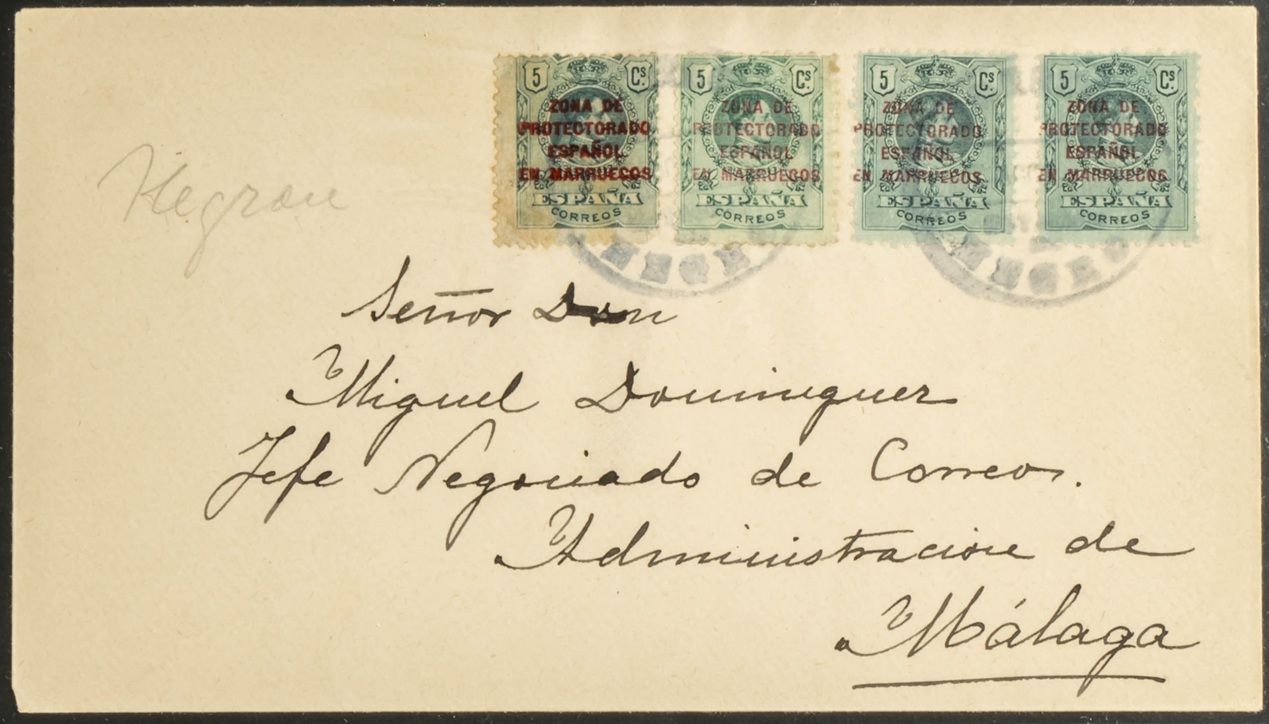 5 Cs. 5 Cs. 5 Cs. 5 Cs.
ZONA DE ZONA DE ZONA DE ZONA DE
PROTECTORADO PROTECTORADO PROTECTORADO PROTECTORADO
ESPAÑOL ESPAÑOL ESPAÑOL ESPAÑOL
EN MARRUECOS EN MARRUECOS EN MARRUECOS EN MARRUECOS
ESPAÑA ESPAÑA ESPAÑA ESPAÑA
CORREOS CORREOS CORREOS CORREOS
Negron
Señor Don
Miguel Dominguez
Jefe Negociado de Correos.
Administracion de
Málaga